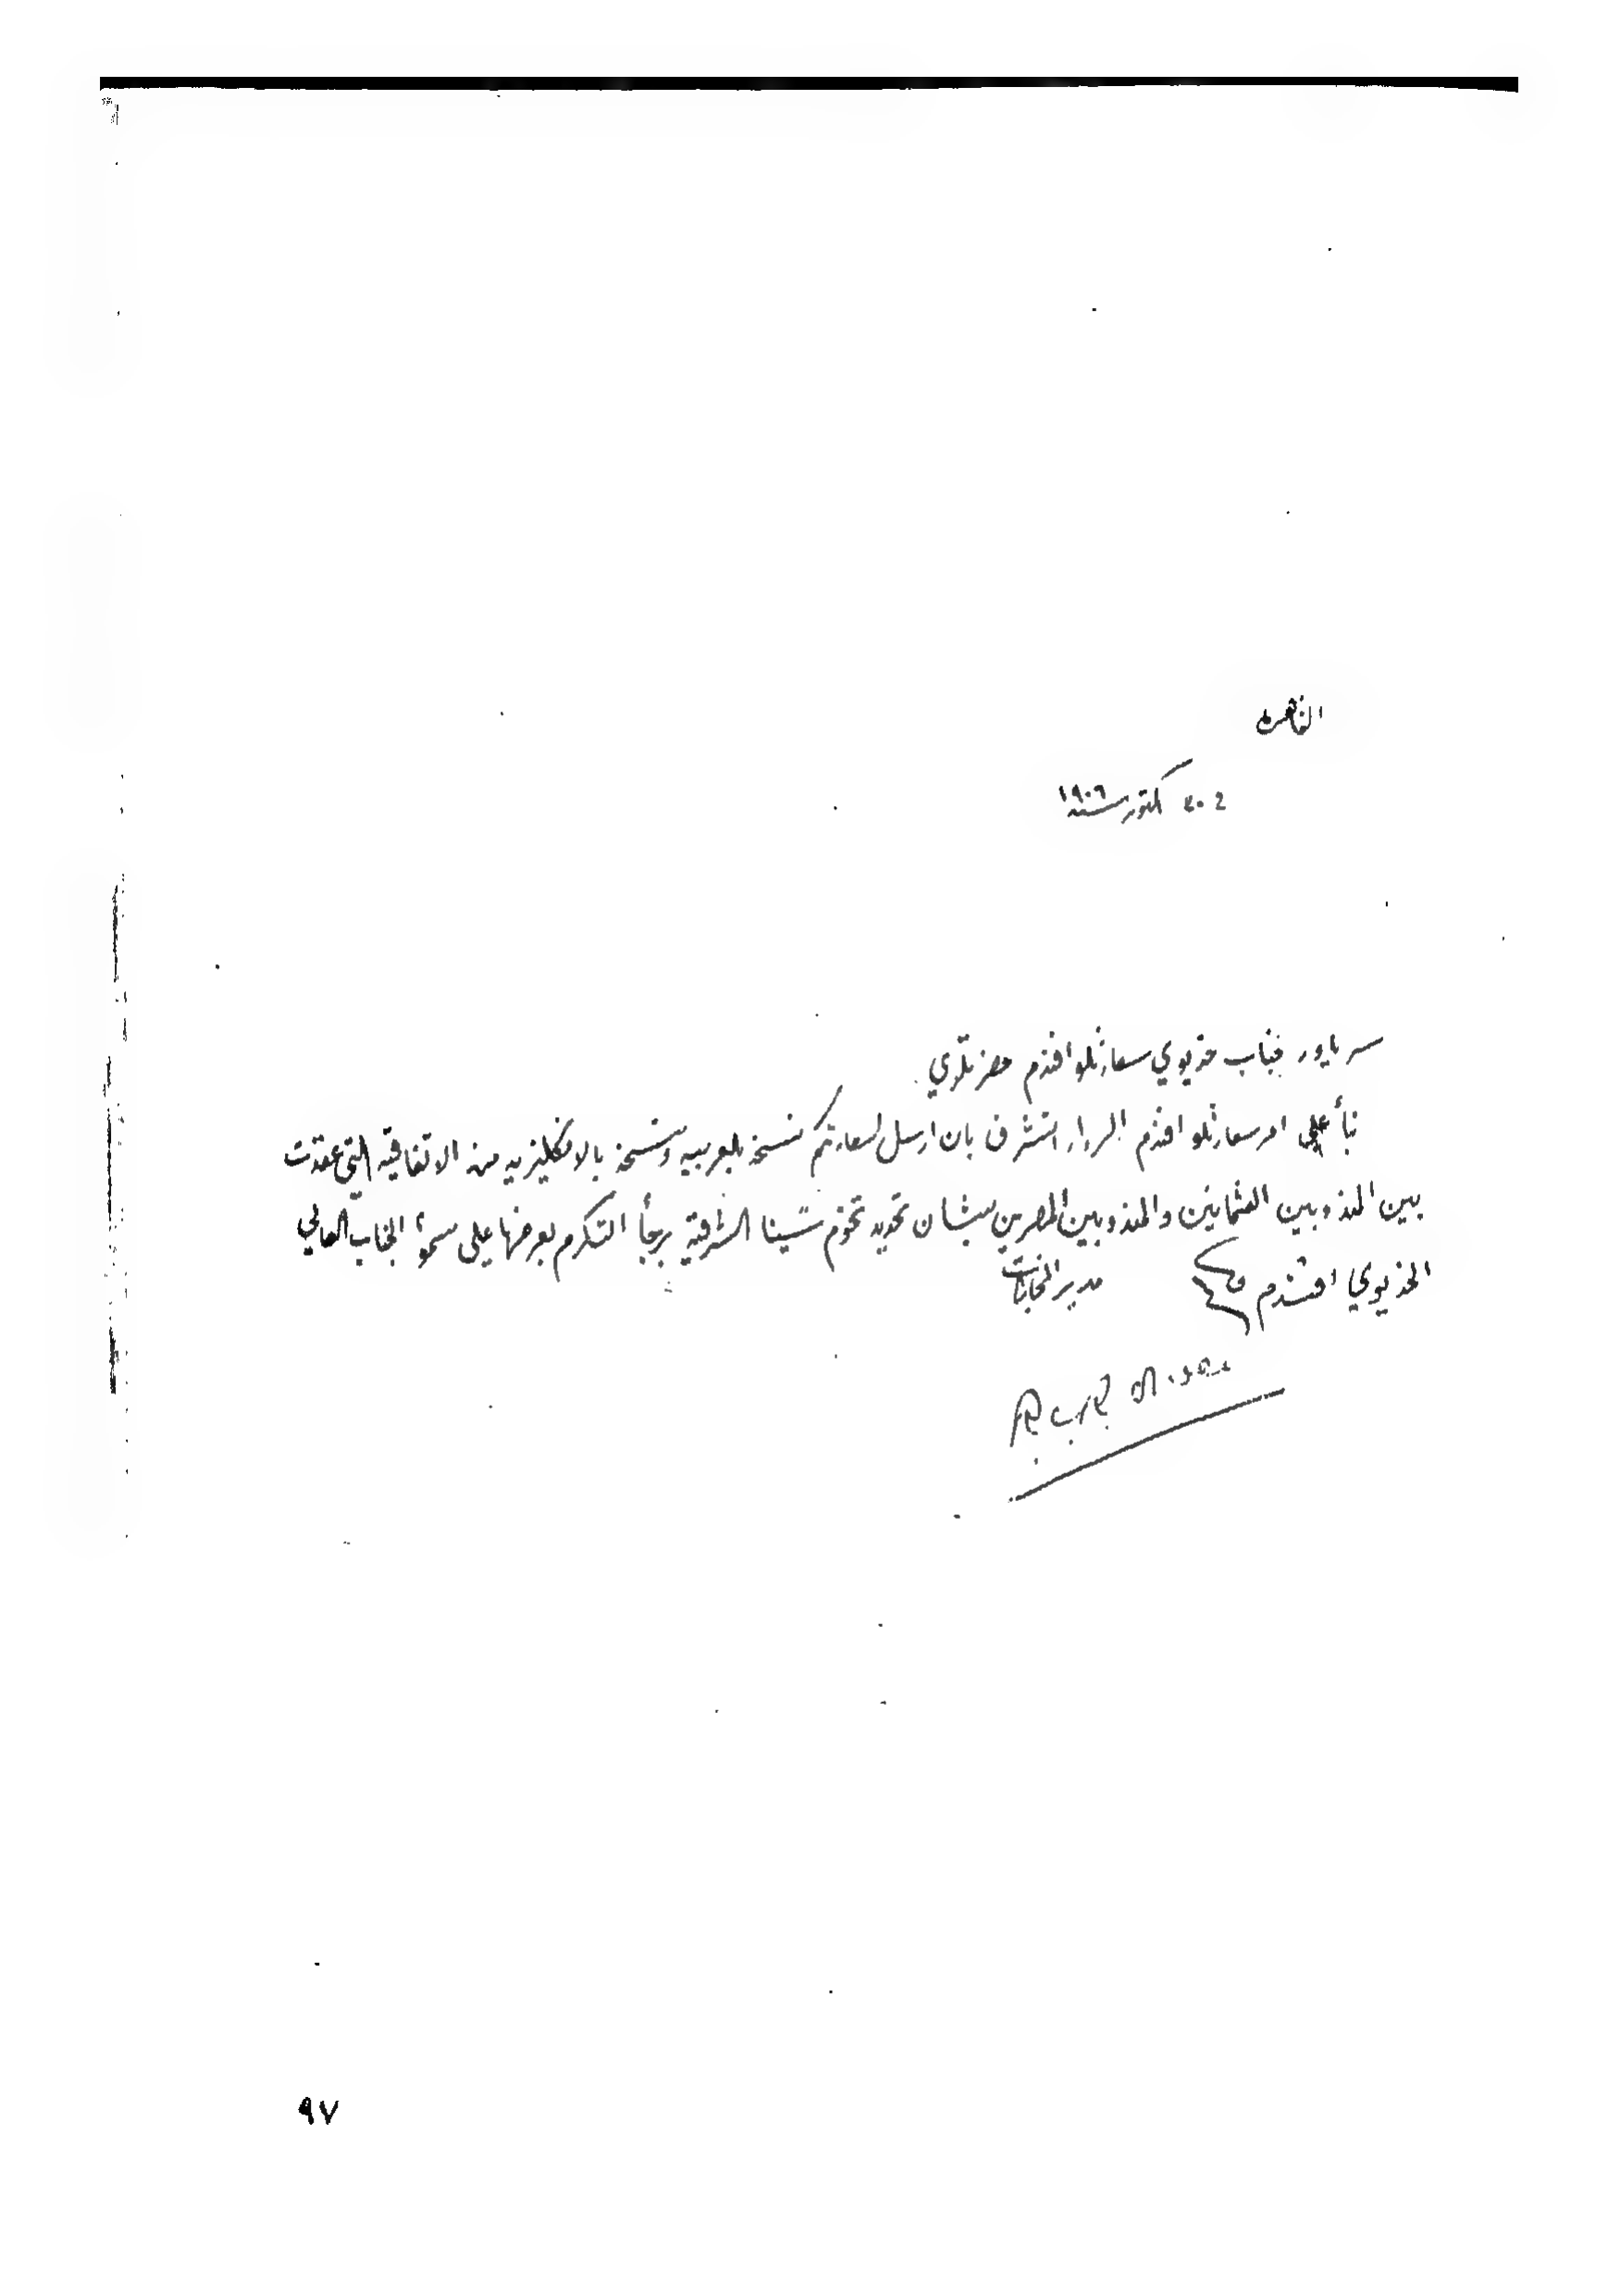 القاهرة
اكتوبر سنه ١٩٠٦
سر ياور جناب خديوي سعادتلو افندم حضرتلري
بنأ على امر سعادتلو افندم السردار اتشرف بان ارسل لسعادتكم نسخة بالعربيه ونسخة بالانكليزيه من الاتفاقية التي عقدت
بين المندوبين العثمانين والمندوبين المصرين بشان تحديد تخوم سينا الشرقية برجأ التكرم بعرضها على سمو الجناب العالي
الخديوي افندم
مدير المخابرات
٩٧